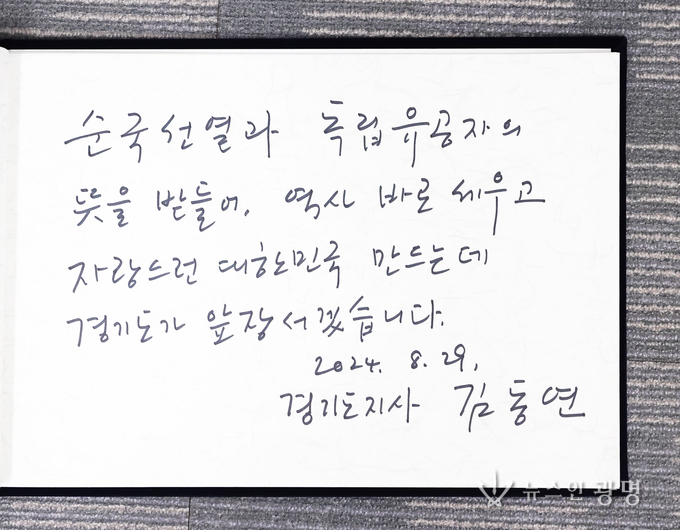 순국선열과 독립유공자의
뜻을 받들어, 역사 바로 세우고
자랑스런 대한민국 만드는데
경기도가 앞장서겠습니다.
2024. 8. 29.
경기도지사 김동연
뉴스인 광명